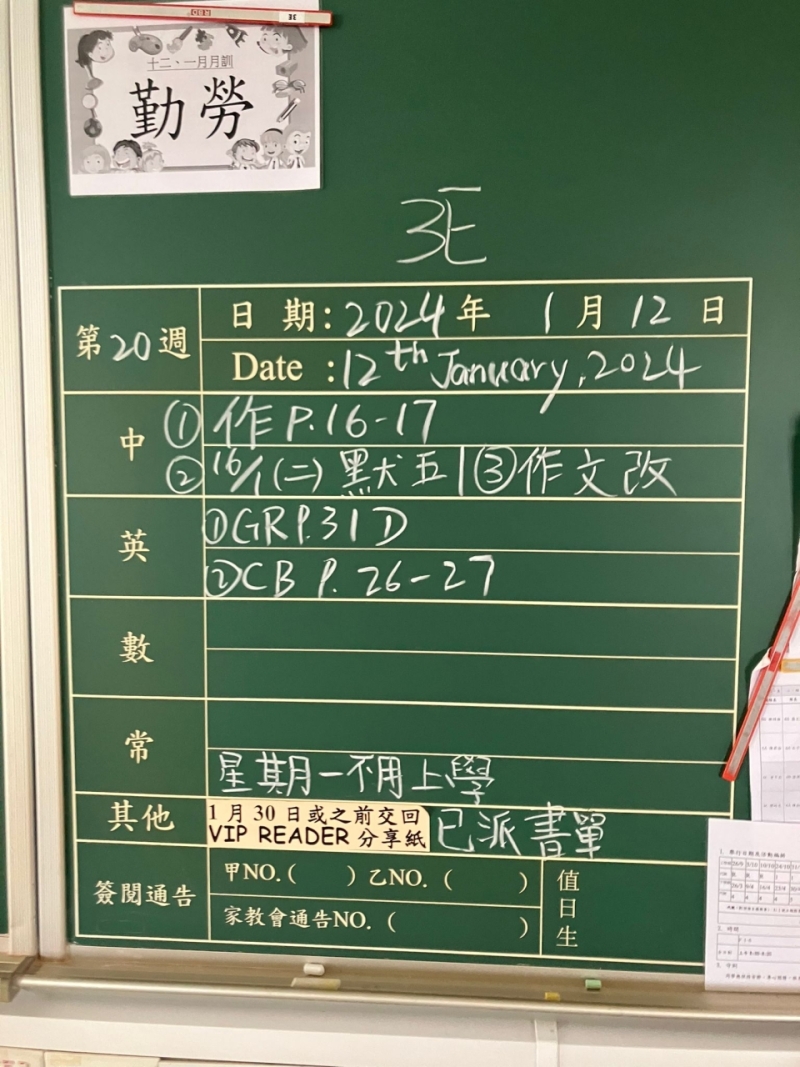 十二、一月月訓
勤勞
3E
第20週
日 期：2024年 1月12日
Date : 12th January, 2024
中
① 作 P.16-17
② 16/1 (二) 默犬五 | ③ 作文改
英
① GR P.31 D
② CB P. 26-27
數
常
星期一不用上學
其他
1月30日或之前交回
VIP READER 分享紙
已派書單
簽閱通告
甲NO.( ) 乙NO. ( )
家教會通告NO. ( )
值日生